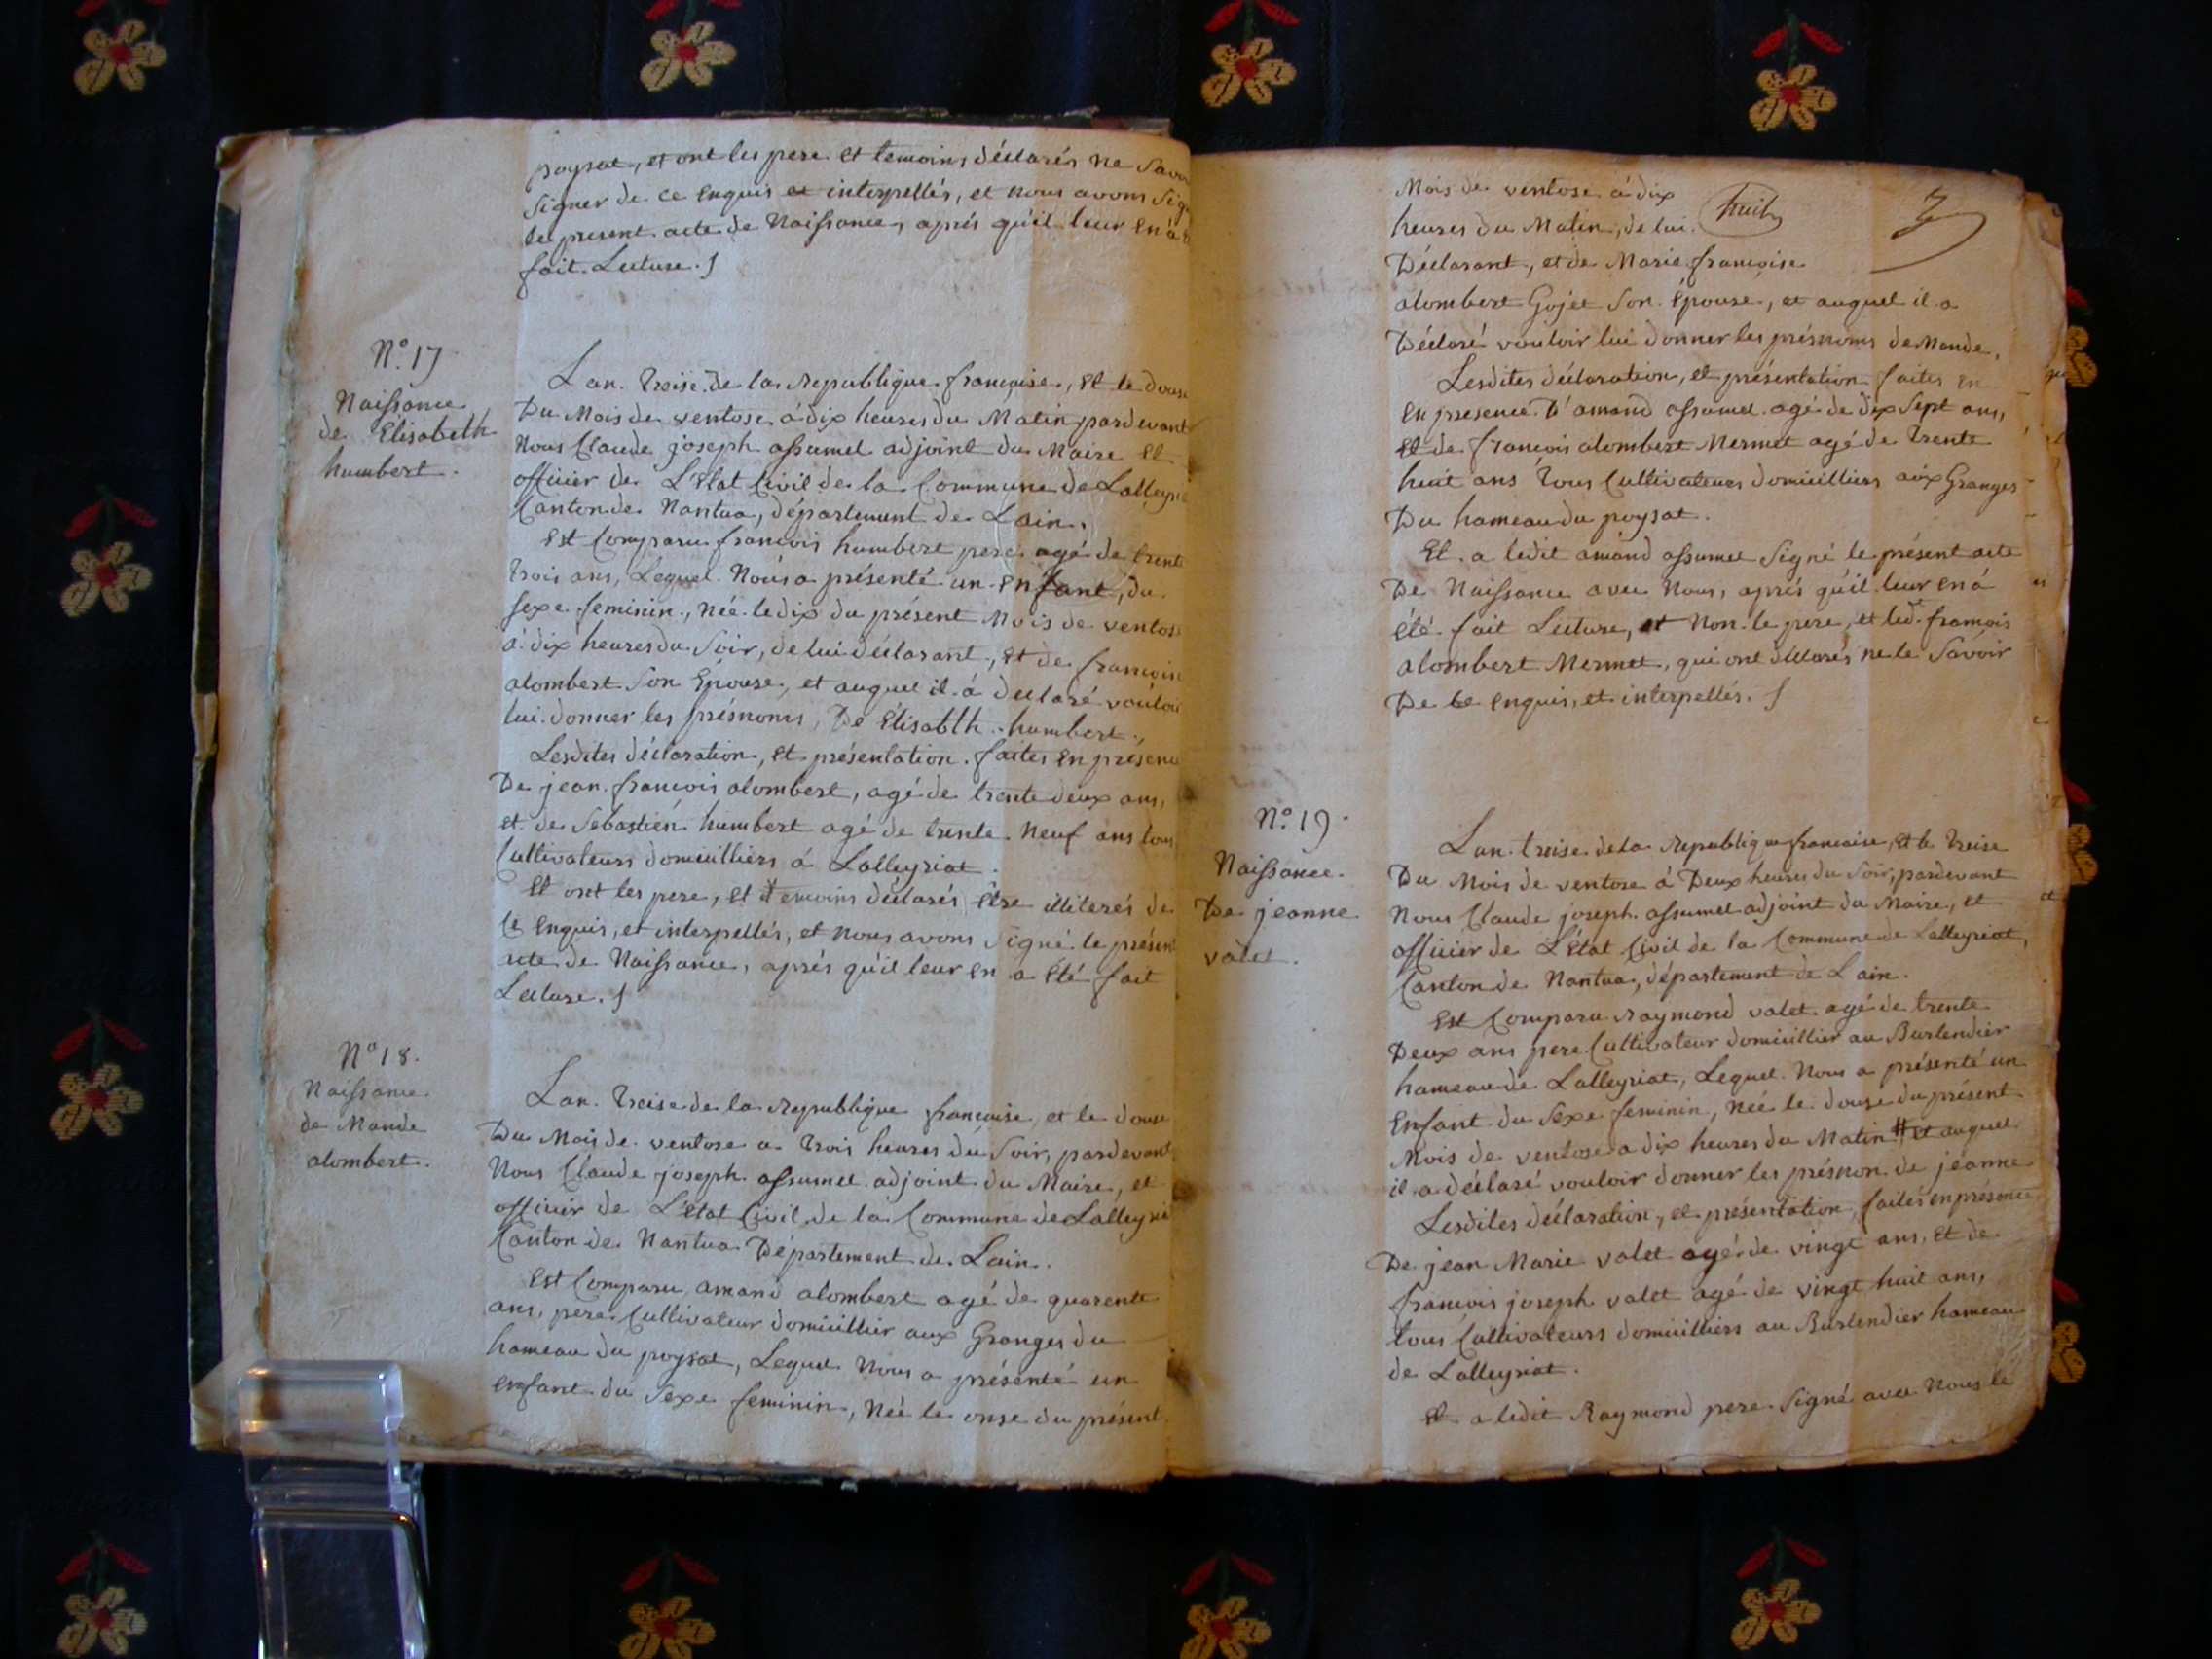 poysat, et ont les pere et temoins déclarés ne Savoi
Signer de ce enquis et interpellés, et nous avons Sig
le present acte de Naissance, aprés qu'il leur en á
fait Lecture.
N.° 17
Naissance
de Elisabeth
humbert.
Lan treise de la Republique francaise, et le douse
Du Mois de ventose á dix heures du Matin pardevant
Nous Claude joseph assumel adjoint du Maire et
officier de L'état Civil de la Commune de Lalleyria
Canton de Nantua, département de Lain.
Est Comparu francois humbert pere agé de trente
trois ans, Lequel Nous a présenté un enfant, du
sexe feminin, née le dix du présent Mois de ventose
á dix heures du Soir, de lui déclarant, et de francoise
alombert Son Epouse, et auquel il á declaré voúloir
lui donner les présnoms De Elisabeth humbert.,
Lesdites déclaration, et présentation faites en présence
De jean francois alombert, agé de trente deux ans,
et de Sebastien humbert agé de trente Neuf ans tous
Cultivateurs domicilliers á Lalleyriat.
Et ont les pere, et temoins déclarés être illiterés de
Ce enquis, et interpellés, et nous avons Signé le présent
acte de Naissance, aprés qu'il leur en a été fait
Lecture.
N° 18.
Naissance
de Mande
alombert.
Lan treise de la Republique francaise et le douse
Du Mois de ventose a trois heures du Soir, pardevant
Nous Claude joseph assumel adjoint du Maire, et
officier de L'état Civil de la Commune de Lalleyria
Canton de Nantua Département de Lain.
Est Comparu amand alombert agé de quarente
ans, pere Cultivateur domicillier aux Granges du
hameau du poysat, Lequel Nous a présenté un
enfant du Sexe feminin, Née le onse du présent
Mois de ventose á dix
heures du Matin, de lui huit 7
Déclarant, et de Marie francoise
alombert Gojet Son Epouse, et auquel il a
Déclaré vouloir lui donner les présnoms de Mande,
Lesdites déclaration, et présentation faites en
en presence D'amand assumel agé de dix Sept ans,
et de francois alombert Mermet agé de trente
huit ans tous Cultivateurs domicilliers aux Granges
Du hameau du poysat.
Et a ledit amand assumel Signé le présent acte
De Naissance avec Nous, aprés qu'il leur en á
été fait Lecture, et Non le pere, et led. francois
alombert Mermet, qui ont déclarés ne le Savoir
De ce enquis, et interpellés.
N.° 19.
Naissance
De jeanne
valet.
Lan treise de la Republique francaise, et le treise
Du Mois de ventose á Deux heures du Soir, pardevant
Nous Claude joseph assumel adjoint du Maire, et
officier de L'état Civil de la Commune de Lalleyriat,
Canton de Nantua, département de Lain.
Est Comparu Raymond valet agé de trente
Deux ans pere Cultivateur domicillier au Burlendier
hameau de Lalleyriat, Lequel Nous a présenté un
enfant du Sexe feminin, Née le douse du présent
Mois de ventose a dix heures du Matin # et auquel
il a déclaré vouloir donner les présnon de jeanne
Lesdites déclaration, et présentation, faites en présence
De jean Marie valet agé de vingt ans, et de
francois joseph valet agé de vingt huit ans,
tous Cultivateurs domicilliers au Burlendier hameau
de Lalleyriat.
Et a ledit Raymond pere Signé avec Nous le